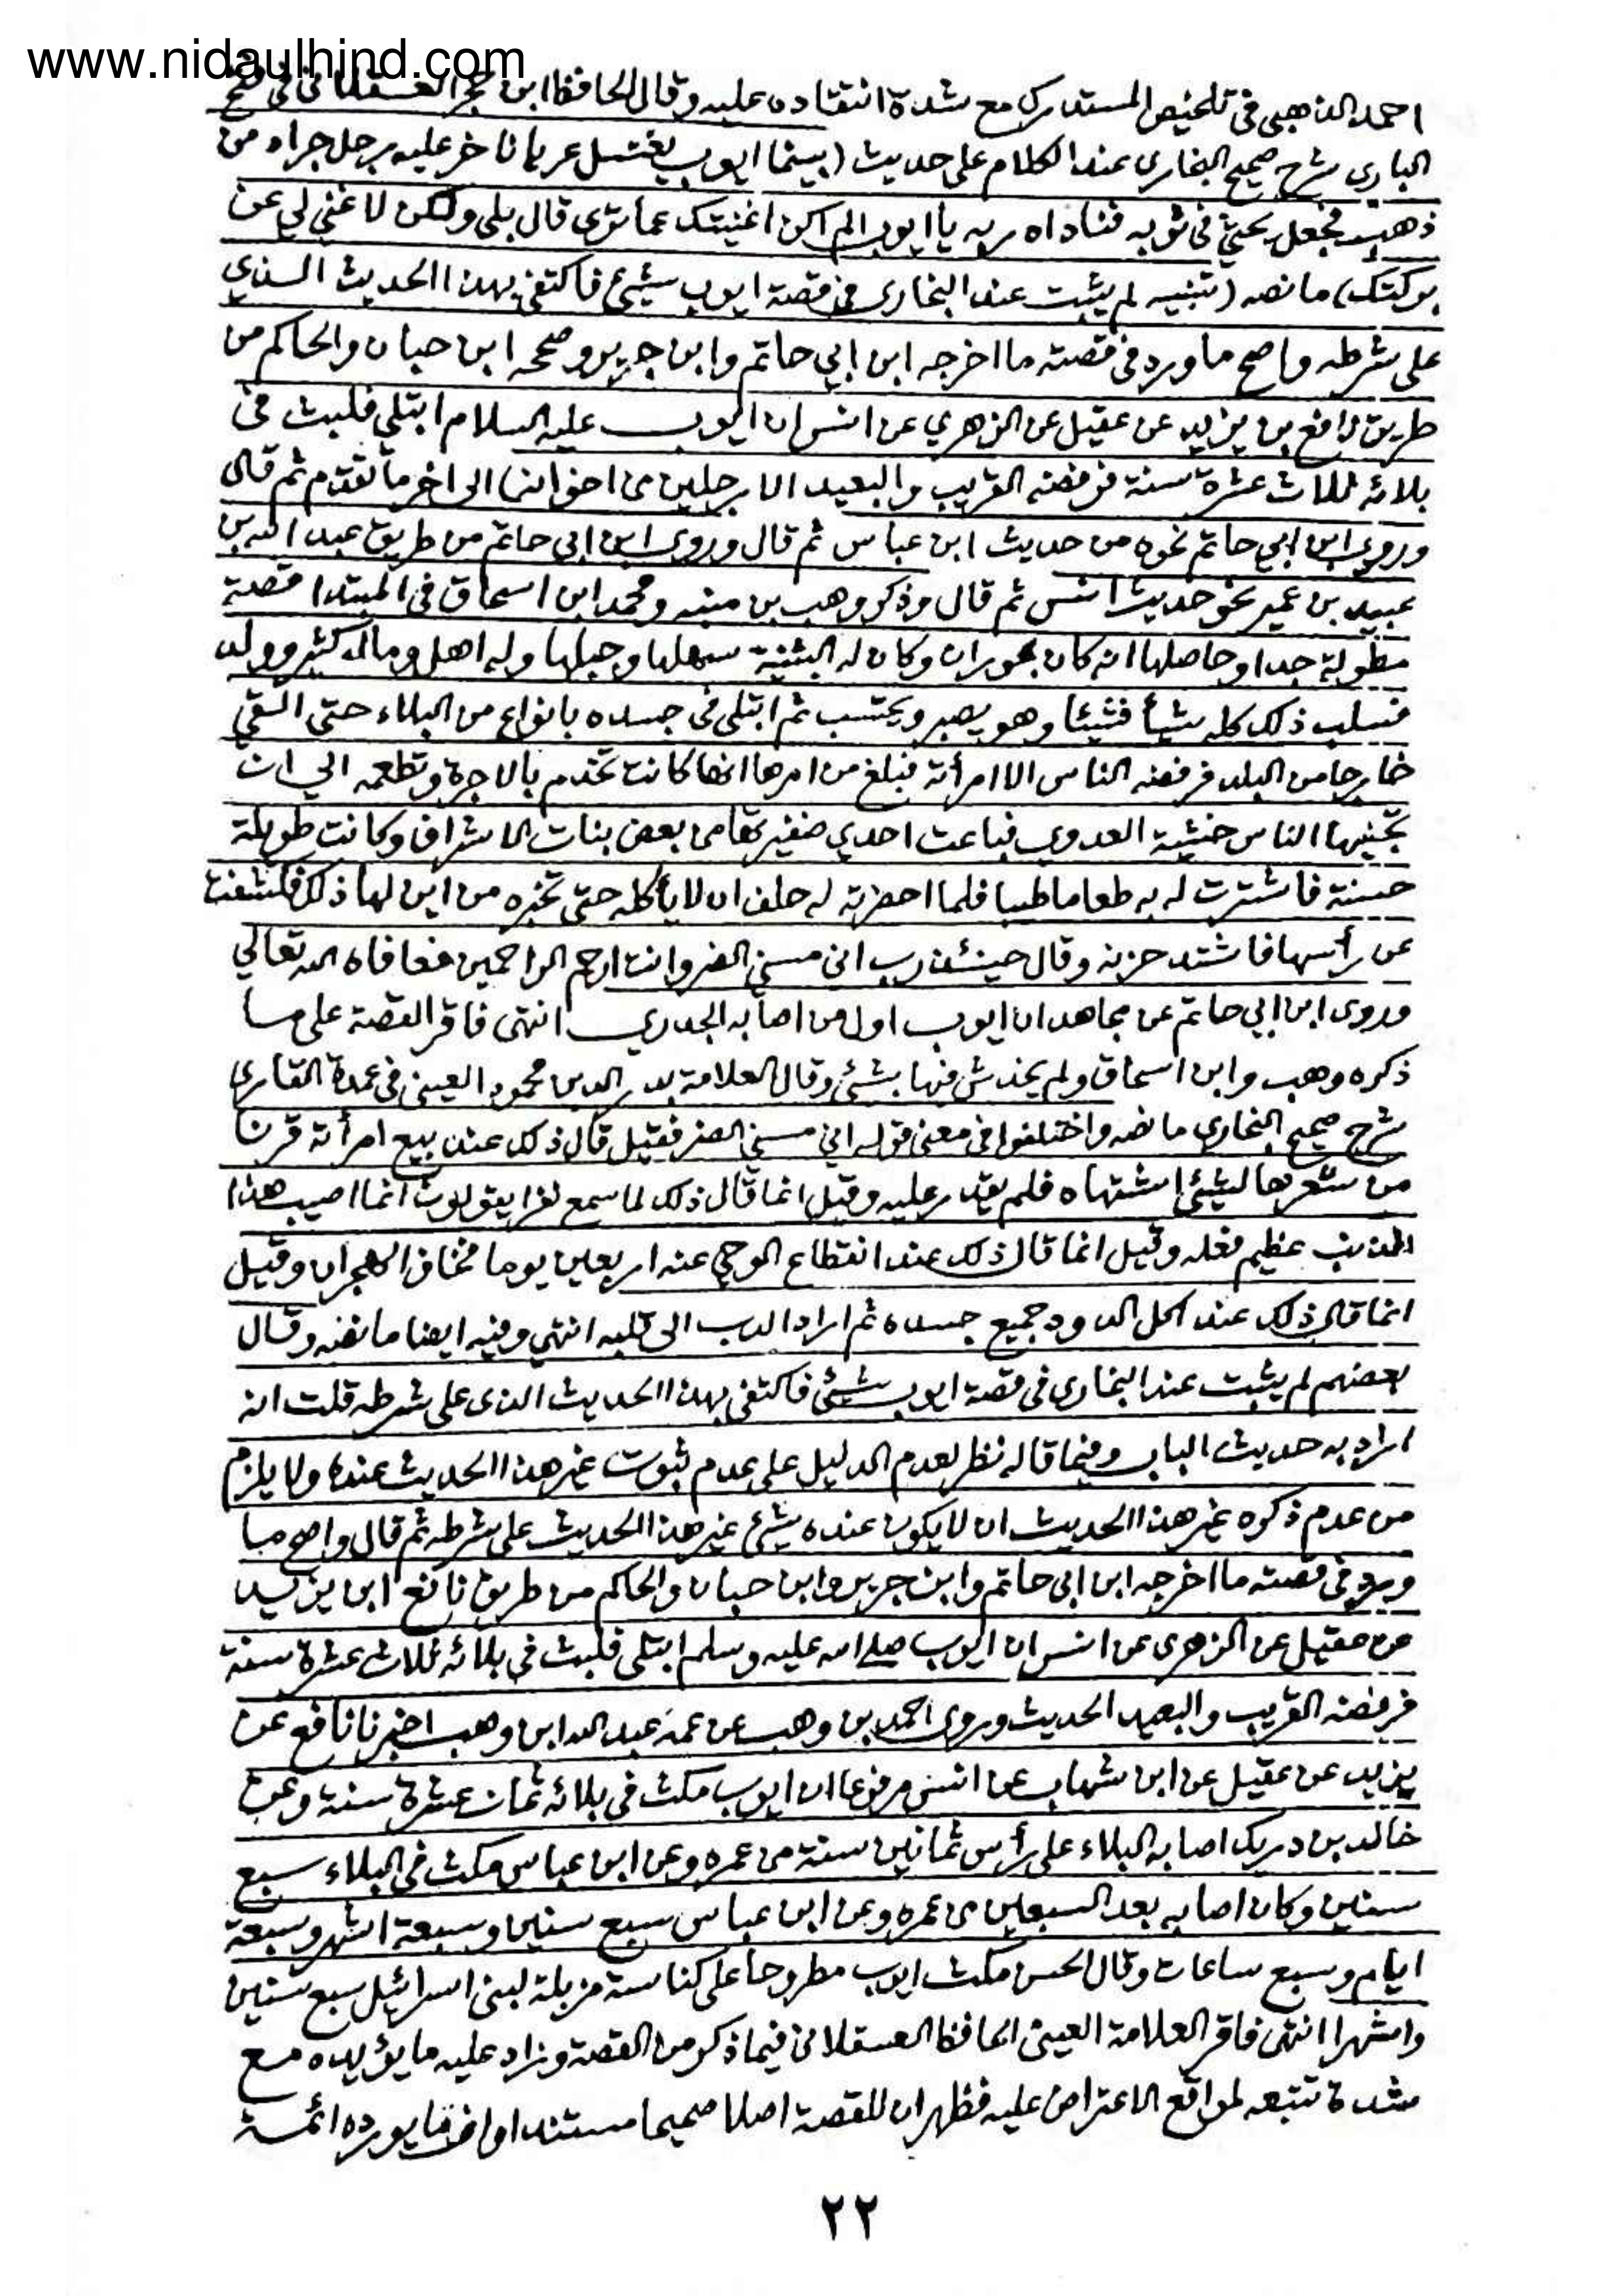 www.nidaulhind.com
احمد الذهبي في تلخيص المستدرك مع شدة انتقاده عليه وقال الحافظ ابن حجر العسقلاني في فتح
الباري شرح صحيح البخاري عند الكلام على حديث (بينما ايوب يغتسل عريانا خر عليه رجل جراد من
ذهب فجعل يحثي في ثوبه فناداه ربه يا ايوب الم اكن اغنيتك عما ترى قال بلى ولكن لا غني لي عن
بركتك) ما نصه (تنبيه لم يثبت عند البخاري في قصة ايوب شيئ فاكتفى بهذا الحديث الذي
على شرطه واصح ما ورد في قصته ما اخرجه ابن ابي حاتم وابن جرير وصححه ابن حبان والحاكم من
طريق نافع بن يزيد عن عقيل عن الزهري عن انس ان ايوب عليه السلام ابتلي فلبث في
بلائه ثلاث عشرة سنة فرفضه القريب والبعيد الا رجلين من اخوانه) الى اخر ما تقدم ثم قال
وروى ابن ابي حاتم نحوه من حديث ابن عباس ثم قال وروى ابن ابي حاتم من طريق عبد الله بن
عبيد بن عمير نحو حديث انس ثم قال وذكر وهب بن منبه ومحمد ابن اسحاق في المبتدا قصة
مطولة جدا وحاصلها انه كان بحوران وكان له البثنية سهلها وجبلها وله اهل ومال كثير وولد
فسلب ذلك كله شيأ فشيئا وهو يصبر ويحتسب ثم ابتلى في جسده بانواع من البلاء حتى القي
خارجا من البلد فرفضه الناس الا امرأته فبلغ من امرها انها كانت تخدم بالاجرة وتطعمه الي ان
تجنبها الناس خشية العدوي فباعت احدي ضفيرتها من بعض بنات الاشراف وكانت طويلة
حسنة فاشترت له به طعاما طيبا فلما احضرته له حلف ان لا يأكله حتى تخبره من اين لها ذلك فكشفت
عن رأسها فاشتد حزنه وقال حينئذ رب اني مسني الضر وانت ارحم الراحمين فعافاه الله تعالي
وروى ابن ابي حاتم عن مجاهد ان ايوب اول من اصابه الجدري انتهى فاقر القصة على ما
ذكره وهب وابن اسحاق ولم يخدش فيها بشئ وقال العلامة بدر الدين محمود العيني في عمدة القاري
شرح صحيح البخاري ما نصه واختلفوا في معنى قوله اني مسني الضر فقيل قال ذلك عند بيع امرأته قرنا
من شعرها لشيئ اشتهاه فلم يقدر عليه وقيل انما قال ذلك لما سمع نفرا يقولون انما اصيب هذا
لذنب عظيم فعله وقيل انما قال ذلك عند انقطاع الوحي عنه اربعين يوما فخاف الهجران وقيل
انما قال ذلك عند اكل الدود جميع جسده ثم اراد الدب الى قلبه انتهي وفيه ايضا ما نصه وقال
بعضهم لم يثبت عند البخاري في قصة ايوب شيئ فاكتفى بهذا الحديث الذى على شرطه قلت انه
اراد به حديث الباب وفيما قاله نظر لعدم الدليل على عدم ثبوت غير هذا الحديث عنده ولا يلزم
من عدم ذكره غير هذا الحديث ان لا يكون عنده شيئ غير هذا الحديث على شرطه ثم قال واصح ما
ورد في قصته ما اخرجه ابن ابي حاتم وابن جرير وابن حبان والحاكم من طريق نافع ابن يزيد
عن عقيل عن الزهرى عن انس ان ايوب صلى الله عليه وسلم ابتلى فلبث في بلائه ثلاث عشرة سنة
فرفضه القريب والبعيد الحديث وروى احمد بن وهب عن عمه عبد الله ابن وهب اخبرنا نافع عن
يزيد عن عقيل عن ابن شهاب عن انس مرفوعا ان ايوب مكث في بلائه ثمان عشرة سنة وعن
خالد بن دريك اصابه البلاء على رأس ثمانين سنة من عمره وعن ابن عباس مكث في البلاء سبع
سنين وكان اصابه بعد السبعين من عمره وعن ابن عباس سبع سنين وسبعة اشهر وسبعة
ايام وسبع ساعات وقال الحسن مكث ايوب مطروحا على كناسة مزبلة لبني اسرائيل سبع سنين
واشهرا انتهى فاقر العلامة العيني الحافظ العسقلاني فيما ذكر من القصة وزاد عليه ما يؤيده مع
شدة تتبعه لمواقع الاعتراض عليه فظهر ان للقصة اصلا صحيحا مستندا يورده ائمة
٢٢